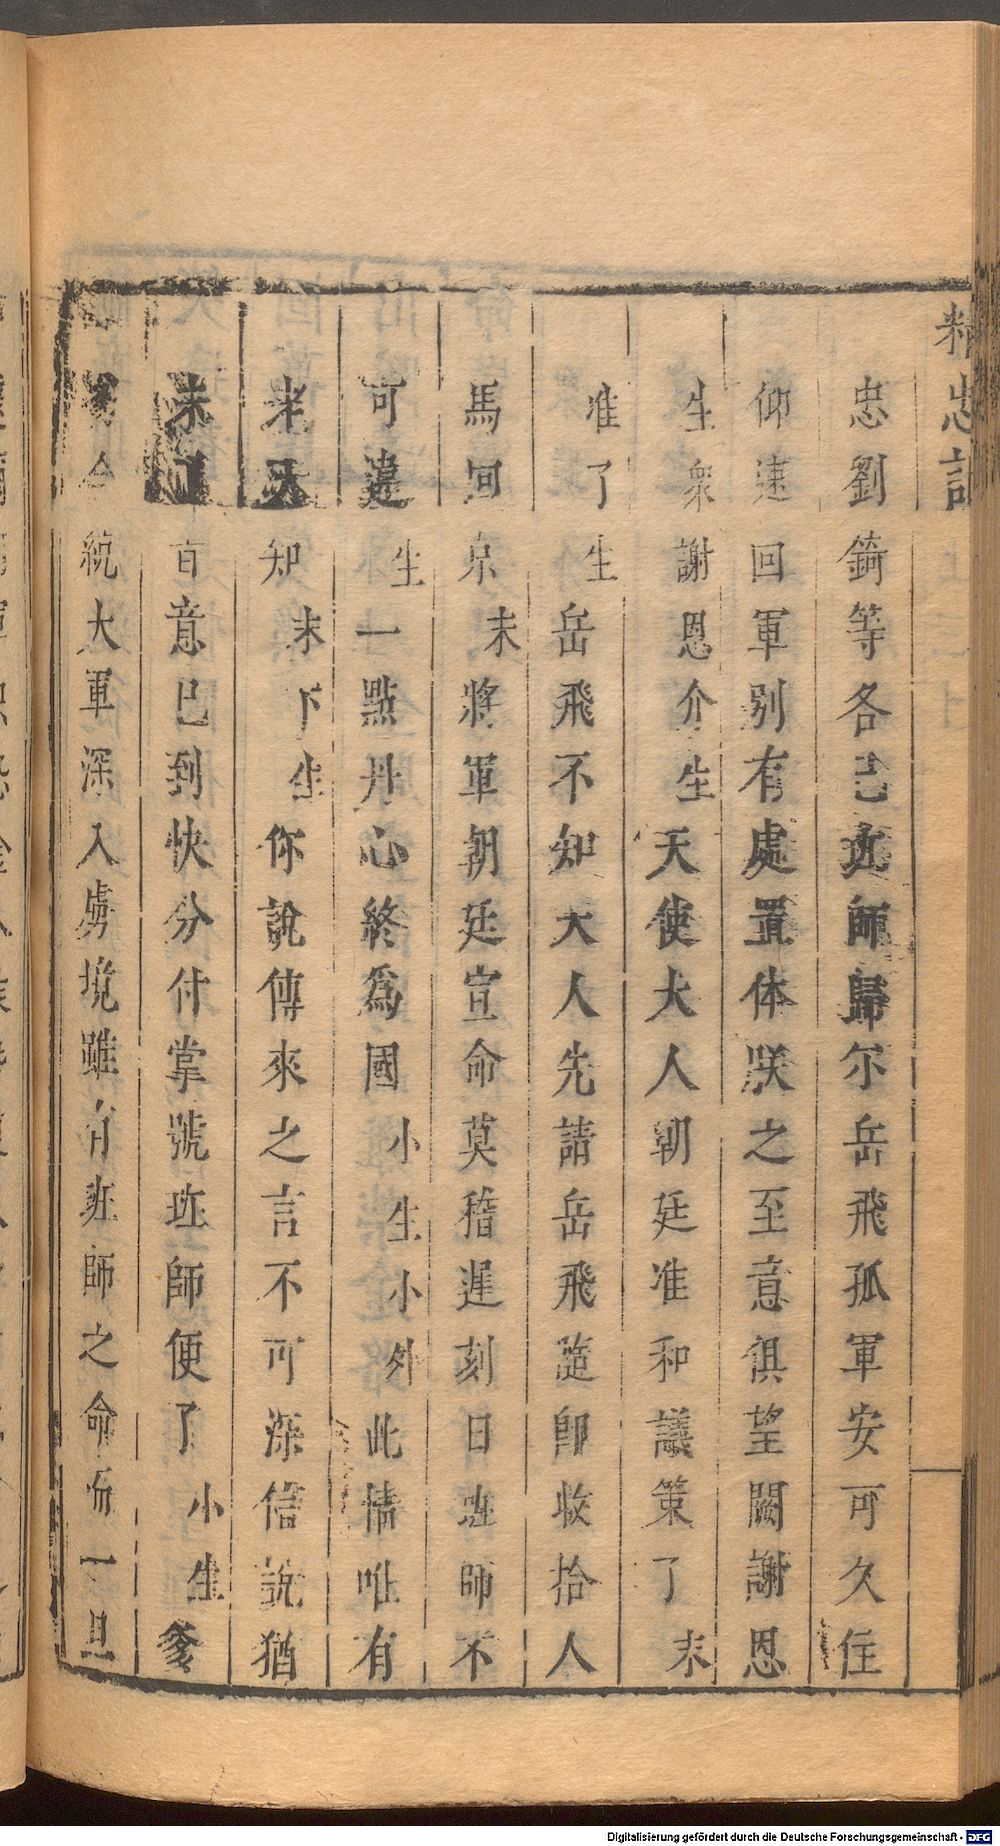 精忠記
忠劉錡等各已班師歸尔岳飛孤軍安可久住
仰速回軍别有處置体朕之至意俱望闕謝恩
生衆謝恩介生天使大人朝廷准和議策了末
准了生岳飛不知大人先請岳飛隨即收拾人
馬回京末將軍朝廷宣命莫稽遲刻日班師不
可違生一點丹心終爲國小生小外此情唯有
老天知末下生你說傳來之言不可深信說猶
未了旨意已到快分付掌號班師便了小生爹
爹今統大軍深入虜境雖有班師之命而一旦
Digitalisierung gefördert durch die Deutsche Forschungsgemeinschaft - DFG